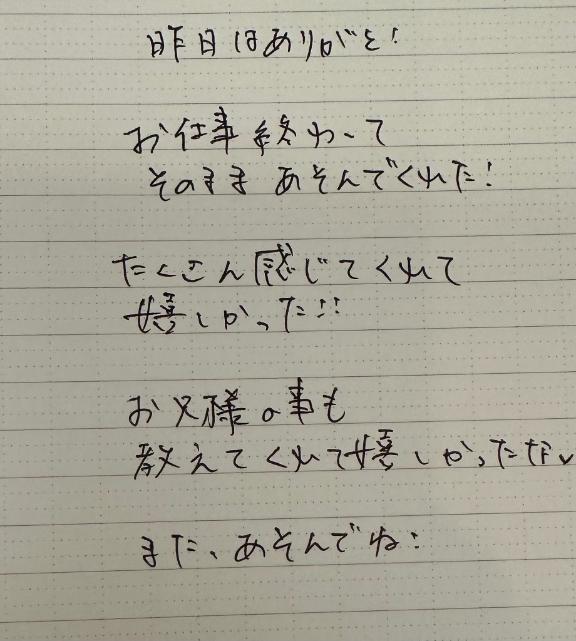 昨日はありがと!
お仕事終わって
そのままあそんでくれた!
たくさん感じてくれて
嬉しかった!!
お父様の事も
教えてくれて嬉しかったな
また、あそんでね!